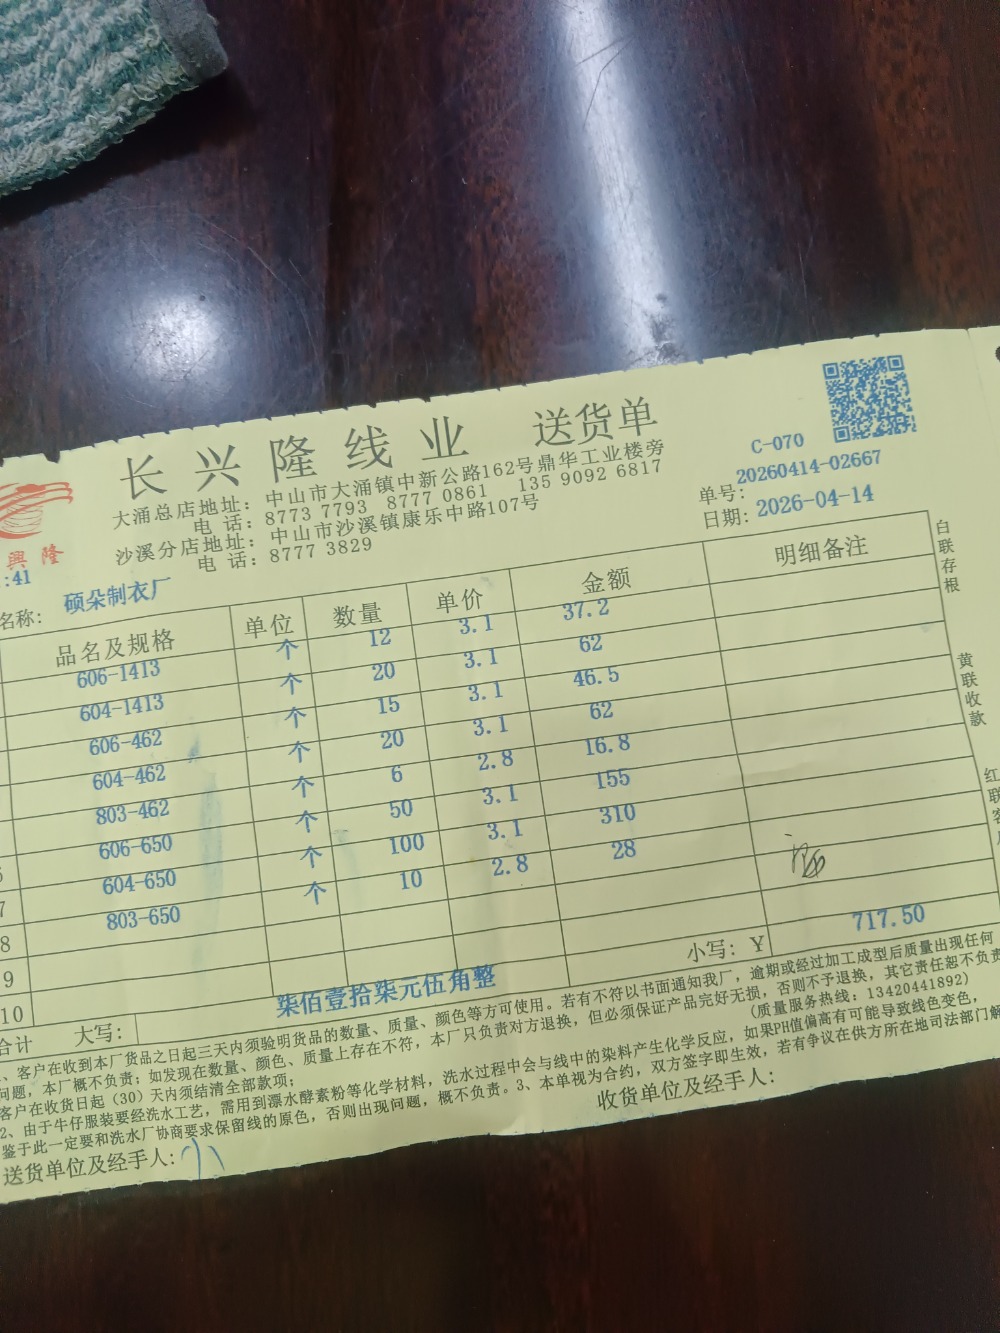 长兴隆线业 送货单
C-070
大涌总店地址：中山市大涌镇中新公路162号鼎华工业楼旁
电 话：8773 7793 8777 0861 135 9092 6817
沙溪分店地址：中山市沙溪镇康乐中路107号
电 话：8777 3829
单号：20260414-02667
日期：2026-04-14
興隆
:41
名称：硕朵制衣厂
品名及规格 单位 数量 单价 金额 明细备注
606-1413 个 12 3.1 37.2
604-1413 个 20 3.1 62
606-462 个 15 3.1 46.5
604-462 个 20 3.1 62
803-462 个 6 2.8 16.8
606-650 个 50 3.1 155
7 604-650 个 100 3.1 310
8 803-650 个 10 2.8 28
9
10
合计 大写：柒佰壹拾柒元伍角整 小写：¥ 717.50
、客户在收到本厂货品之日起三天内须验明货品的数量、质量、颜色等方可使用。若有不符以书面通知我厂，逾期或经过加工成型后质量出现任何
问题，本厂概不负责；如发现在数量、颜色、质量上存在不符，本厂只负责对方退换，但必须保证产品完好无损，否则不予退换，其它责任恕不负责
客户在收货日起（30）天内须结清全部款项；（质量服务热线：13420441892）
2、由于牛仔服装要经洗水工艺，需用到漂水酵素粉等化学材料，洗水过程中会与线中的染料产生化学反应，如果PH值偏高有可能导致线色变色，
鉴于此一定要和洗水厂协商要求保留线的原色，否则出现问题，概不负责。3、本单视为合约，双方签字即生效，若有争议在供方所在地司法部门解
送货单位及经手人： 收货单位及经手人：
白联存根
黄联收款
红联客